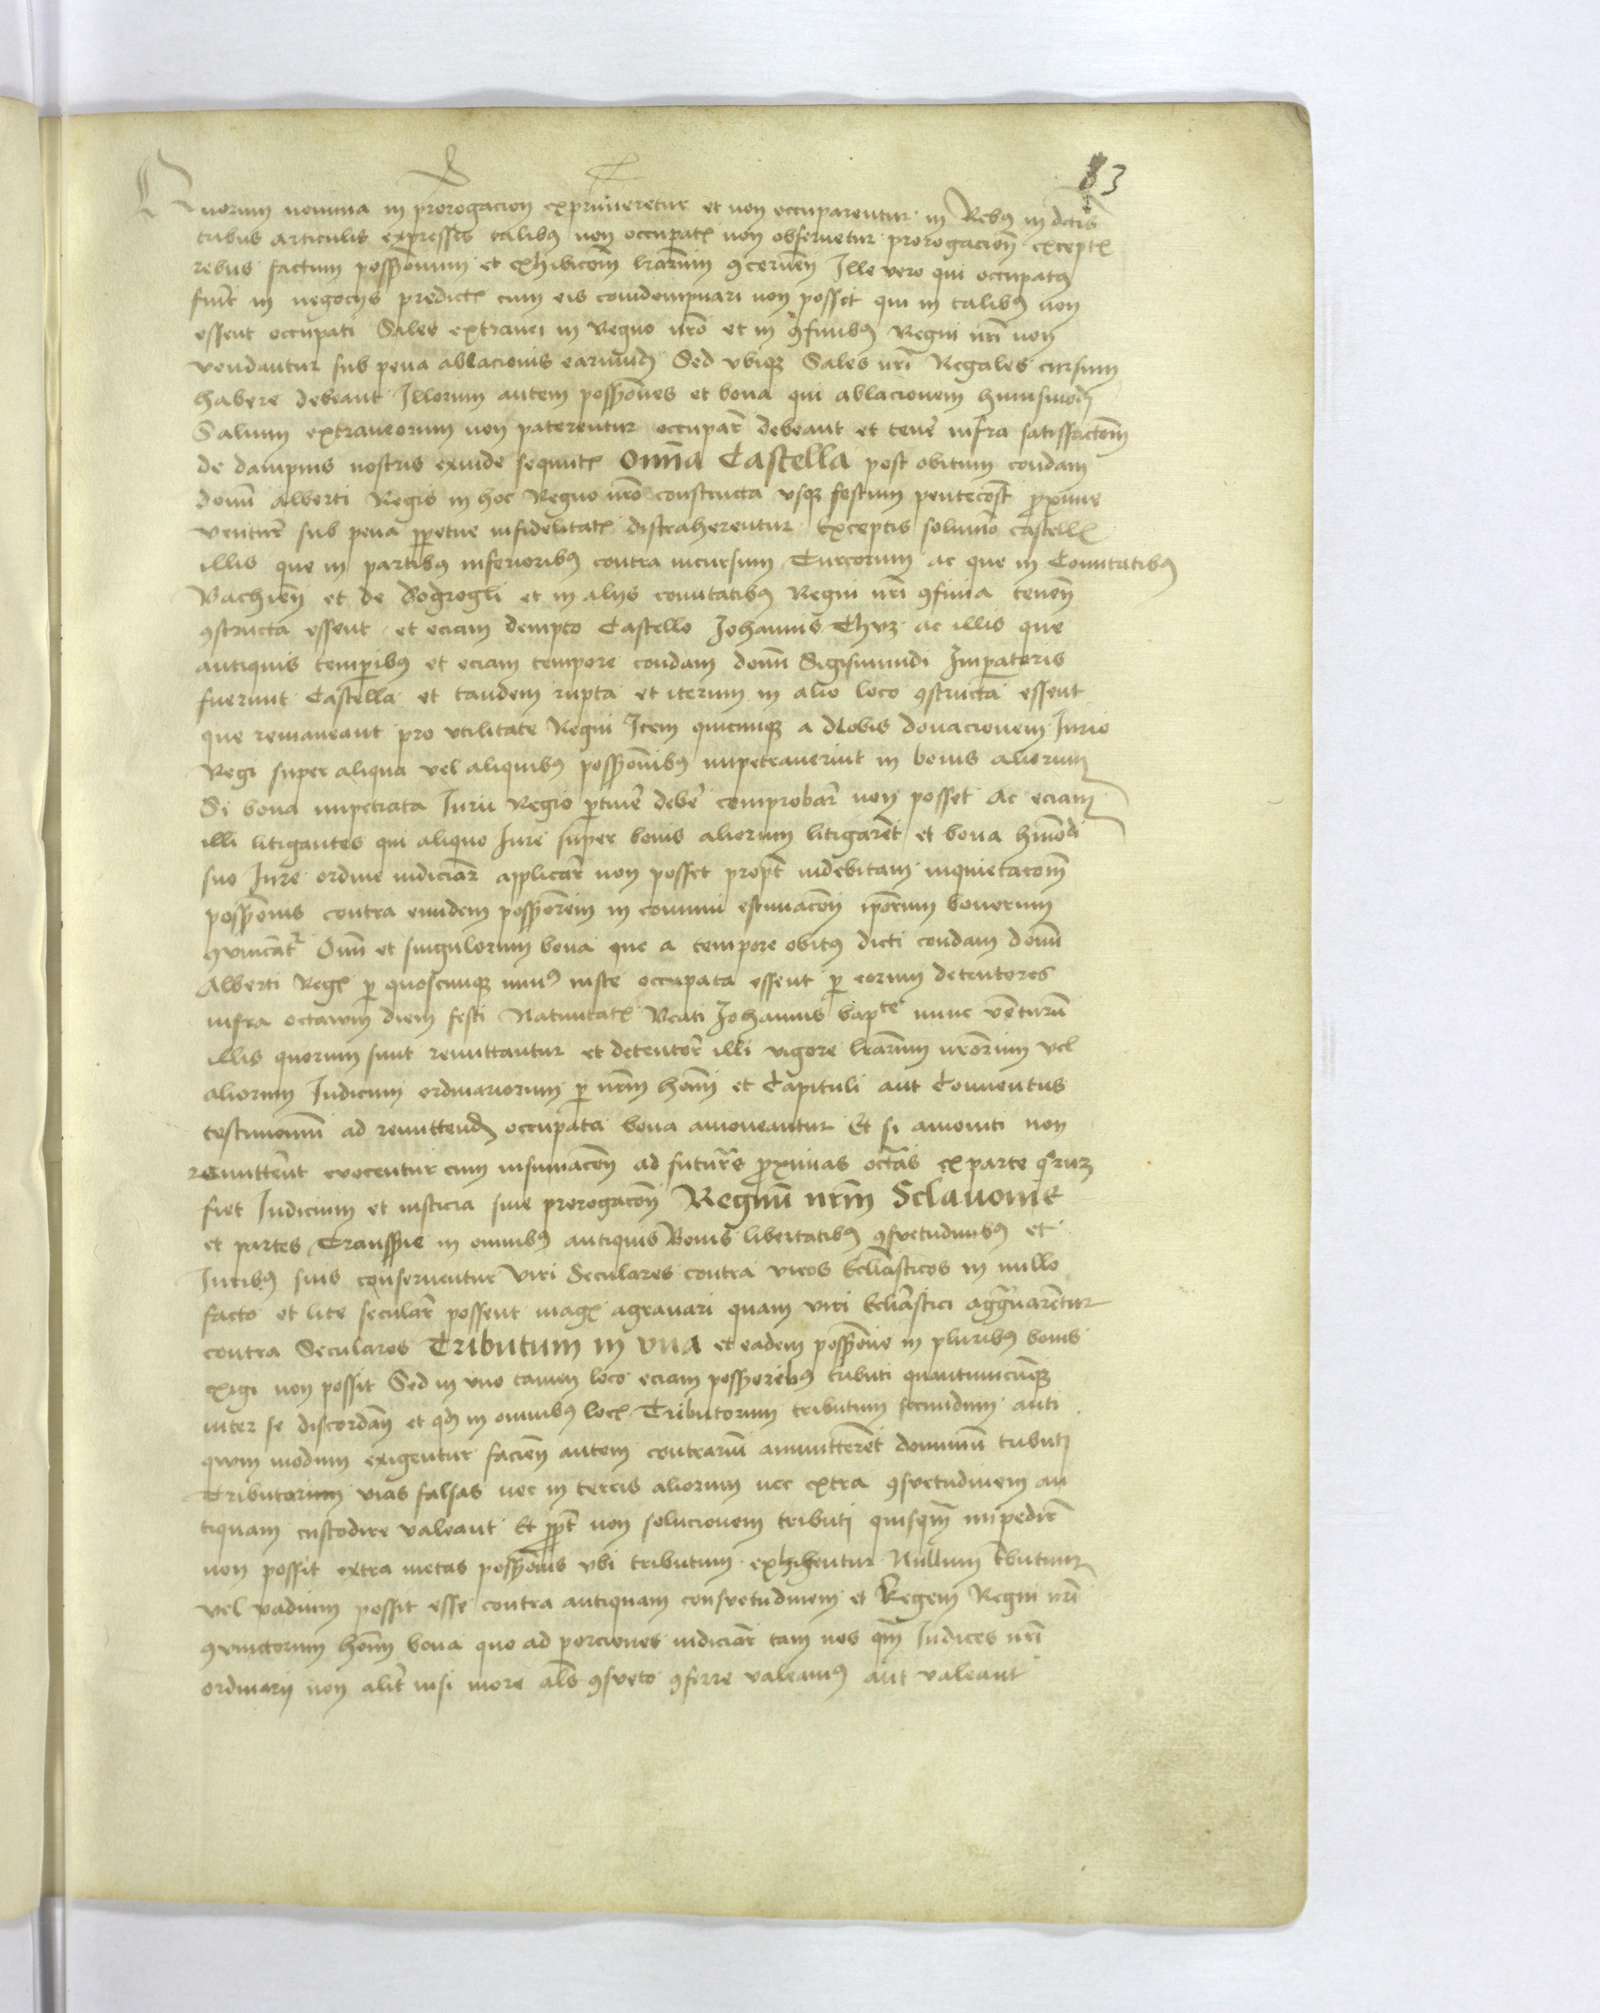 83
Quorum nomina in prorogacion exprimeretur et non occuparentur in Rebus in dictis
tribus articulis expressis talibus non occupatis non observetur prorogacionem exceptis
rebus factum possessionum et exhibicionem litterarum concernen Ille vero qui occupatus
fuerit in negocys predictis cum eis condempnari non posset qui in talibus non
essent occupati Sales extranei in Regno nostro et in confinibus Regni nostri non
vendantur sub pena ablacionis earundem Sed ubique Sales nostri Regales cursum
habere debeant Illorum autem possessiones et bona qui ablacionem huiusmodi
Salium extraneorum non paterentur occupari debeant et teneri infra satisfactionem
de dampnis nostris exinde sequutis Omnia Castella post obitum condam
domini Alberti Regis in hoc Regno nostro constructa usque festum pentecostes proxime
venturum sub pena perpetue infidelitatis distraherentur Exceptis solummodo castellis
illis que in partibus inferioribus contra incursum Turcorum ac que in Comitatibus
Bachien et de Bodrogh et in alys comitatibus Regni nostri confinia tenen
constructa essent et eciam dempto Castello Johannis Thuz ac illis que
antiquis temporibus et eciam tempore condam domini Sigismundi Imperatoris
fuerunt Castella et tandem rupta et iterum in alio loco constructa essent
que remaneant pro utilitate Regni Item quicunque a Nobis donacionem Iurio
Regi super aliqua vel aliquibus possessionibus impetraverint in bonis aliorum
Si bona impetrata Iuri Regio pertinere debere comprobare non posset Ac eciam
illi litigantes qui aliquo Iure super bonis aliorum litigarent et bona huiusmodi
suo Iure ordine iudiciario applicare non posset propter indebitam inquietacionem
possessionis contra eundem possessorem in communi estimacione ipsorum bonorum
convincatur Omnium et singulorum bona que a tempore obitus dicti condam domini
Alberti Regis per quoscunque minus iuste occupata essent per eorum detentores
infra octavum diem festi Nativitatis Beati Johannis baptiste nunc venturum
illis quorum sunt remittantur et detentores illi vigore litterarum nostrarum vel
aliorum Iudicum ordinariorum per nostrum hominem et Capituli aut Conventus
testimonium ad remittendum occupata bona amoneantur Et si amoniti non
remitterent evocentur cum insinuacione ad futuras proximas octavas ex parte quorum
fiet Iudicium et iusticia sine prorogacione Regnum nostrum Sclavonie
et partes Transsylvanie in omnibus antiquis Bonis libertatibus consvetudinibus et
Iuribus suis conserventur Viri Seculares contra viros Ecclesiasticos in nullo
facto et lite seculari possent magis agravari quam viri Ecclesiastici aggravarentur
contra Seculares Tributum in una et eadem possessione in pluribus bonis
exigi non possit Sed in uno tamen loco eciam possessoribus tributi quantumcunque
inter se discordan et quod in omnibus locis Tributorum tributum secundum anti
quum modum exigentur facien autem contrarium amitterent dominium tributi
Tributorum vias falsas nec in terris aliorum nec extra consvetudinem an
tiquam custodire valeant Et propter non solucionem tributi quisquam impedire
non possit extra metas possessionis ubi tributum exhibentur Nullum tributum
vel vadium possit esse contra antiquam consvetudinem et Legem Regni nostri
convictorum hominum bona quo ad porciones iudiciarias tam nos quam Iudices nostri
ordinarii non aliter nisi more alias consveto conferre valeamus aut valeant